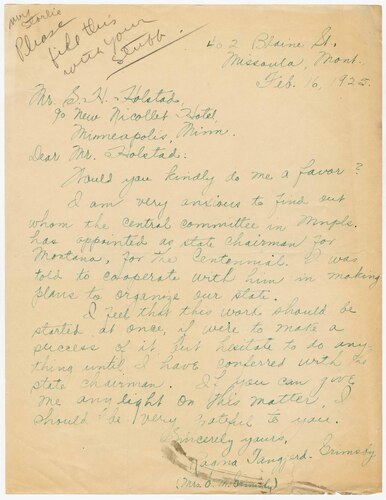 Mrs
Please
file this
with your
Stubb.
402 Blaine St.
Missoula, Mont.
Feb. 16, 1925.
Mr. S. H. Holstad,
% New Nicollet Hotel,
Minneapolis, Minn.
Dear Mr. Holstad:
Would you kindly do me a favor?
I am very anxious to find out
whom the central committee in Mnpls.
has appointed as state chairman for
Montana, for the Centennial. I was
told to cooperate with him in making
plans to organize our state.
I feel that this work should be
started at once, if were to make a
success of it but hesitate to do any
thing until I have conferred with the
state chairman. If you can give
me any light on this matter, I
should be very grateful to you.
Sincerely yours,
Ragna Grimsby
(Mrs. O. M. Grimsby)